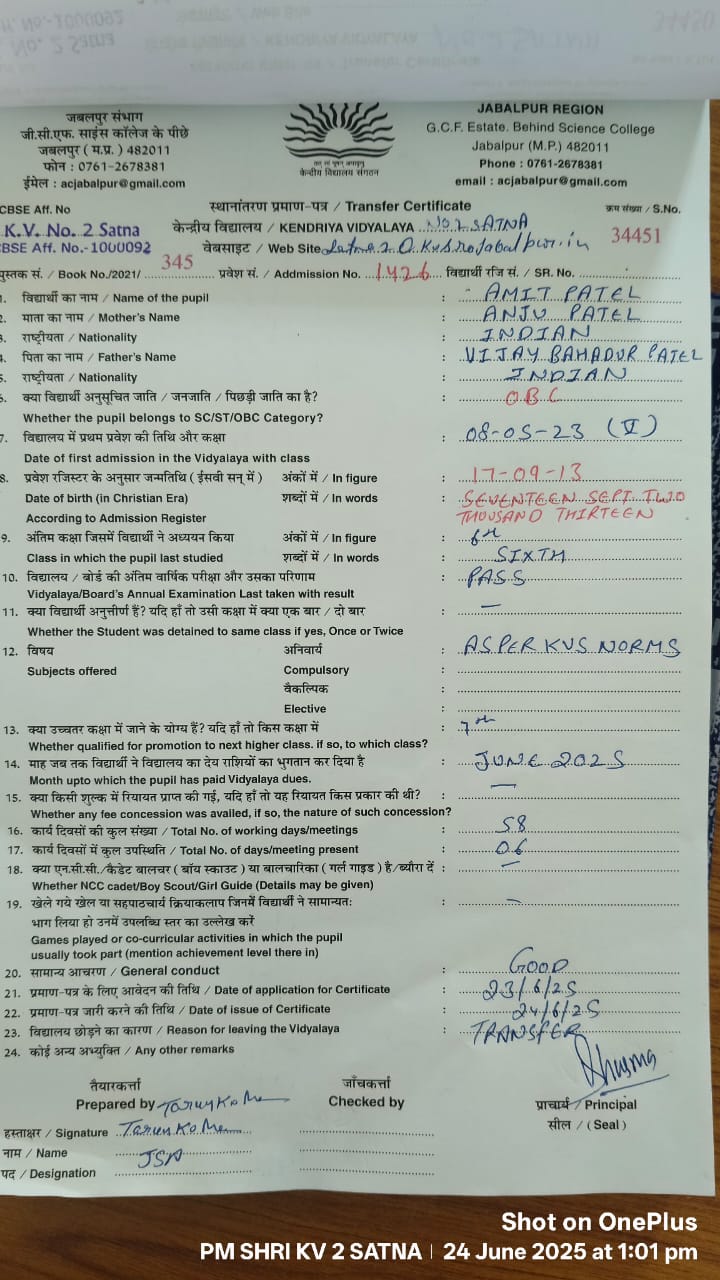 जबलपुर संभाग
जी.सी.एफ. साइंस कॉलेज के पीछे
जबलपुर ( म.प्र. ) 482011
फोन : 0761-2678381
ईमेल : acjabalpur@gmail.com
केन्द्रीय विद्यालय संगठन
JABALPUR REGION
G.C.F. Estate. Behind Science College
Jabalpur (M.P.) 482011
Phone : 0761-2678381
email : acjabalpur@gmail.com
CBSE Aff. No
स्थानांतरण प्रमाण-पत्र / Transfer Certificate
क्रम संख्या / S.No.
K.V. No. 2 Satna
केन्द्रीय विद्यालय / KENDRIYA VIDYALAYA NO.2 SATNA
34451
CBSE Aff. No.-1000092
वेबसाइट / Web Site
पुस्तक सं. / Book No./2021/ 345 प्रवेश सं. / Addmission No. 1426 विद्यार्थी रजि सं. / SR. No.
1. विद्यार्थी का नाम / Name of the pupil : AMIT PATEL
2. माता का नाम / Mother's Name : ANJU PATEL
3. राष्ट्रीयता / Nationality : INDIAN
4. पिता का नाम / Father's Name : VIJAY BAHADUR PATEL
5. राष्ट्रीयता / Nationality : INDIAN
6. क्या विद्यार्थी अनुसूचित जाति / जनजाति / पिछड़ी जाति का है? : OBC
Whether the pupil belongs to SC/ST/OBC Category?
7. विद्यालय में प्रथम प्रवेश की तिथि और कक्षा : 08-05-23 (V)
Date of first admission in the Vidyalaya with class
8. प्रवेश रजिस्टर के अनुसार जन्मतिथि ( ईसवी सन् में ) अंकों में / In figure : 17-09-13
Date of birth (in Christian Era) शब्दों में / In words : SEVENTEEN SEPT TWO
According to Admission Register THOUSAND THIRTEEN
9. अंतिम कक्षा जिसमें विद्यार्थी ने अध्ययन किया अंकों में / In figure : 6th
Class in which the pupil last studied शब्दों में / In words : SIXTH
10. विद्यालय / बोर्ड की अंतिम वार्षिक परीक्षा और उसका परिणाम : PASS
Vidyalaya/Board's Annual Examination Last taken with result
11. क्या विद्यार्थी अनुत्तीर्ण हैं? यदि हाँ तो उसी कक्षा में क्या एक बार / दो बार : —
Whether the Student was detained to same class if yes, Once or Twice
12. विषय अनिवार्य : AS PER KVS NORMS
Subjects offered Compulsory :
वैकल्पिक :
Elective :
13. क्या उच्चतर कक्षा में जाने के योग्य हैं? यदि हाँ तो किस कक्षा में : 7th
Whether qualified for promotion to next higher class. if so, to which class?
14. माह जब तक विद्यार्थी ने विद्यालय का देय राशियों का भुगतान कर दिया है : JUNE 2025
Month upto which the pupil has paid Vidyalaya dues.
15. क्या किसी शुल्क में रियायत प्राप्त की गई, यदि हाँ तो यह रियायत किस प्रकार की थी? : —
Whether any fee concession was availed, if so, the nature of such concession?
16. कार्य दिवसों की कुल संख्या / Total No. of working days/meetings : 58
17. कार्य दिवसों में कुल उपस्थिति / Total No. of days/meeting present : 06
18. क्या एन.सी.सी./कैडेट बालचर ( बॉय स्काउट ) या बालचारिका ( गर्ल गाइड ) है/ब्यौरा दें : —
Whether NCC cadet/Boy Scout/Girl Guide (Details may be given)
19. खेले गये खेल या सहपाठचार्य क्रियाकलाप जिनमें विद्यार्थी ने सामान्यतः : —
भाग लिया हो उनमें उपलब्धि स्तर का उल्लेख करें
Games played or co-curricular activities in which the pupil
usually took part (mention achievement level there in)
20. सामान्य आचरण / General conduct : GOOD
21. प्रमाण-पत्र के लिए आवेदन की तिथि / Date of application for Certificate : 23/6/25
22. प्रमाण-पत्र जारी करने की तिथि / Date of issue of Certificate : 24/6/25
23. विद्यालय छोड़ने का कारण / Reason for leaving the Vidyalaya : TRANSFER
24. कोई अन्य अभ्युक्ति / Any other remarks :
तैयारकर्त्ता जाँचकर्त्ता
Prepared by Checked by प्राचार्य / Principal
हस्ताक्षर / Signature सील / (Seal)
नाम / Name
पद / Designation JSA
Shot on OnePlus
PM SHRI KV 2 SATNA | 24 June 2025 at 1:01 pm